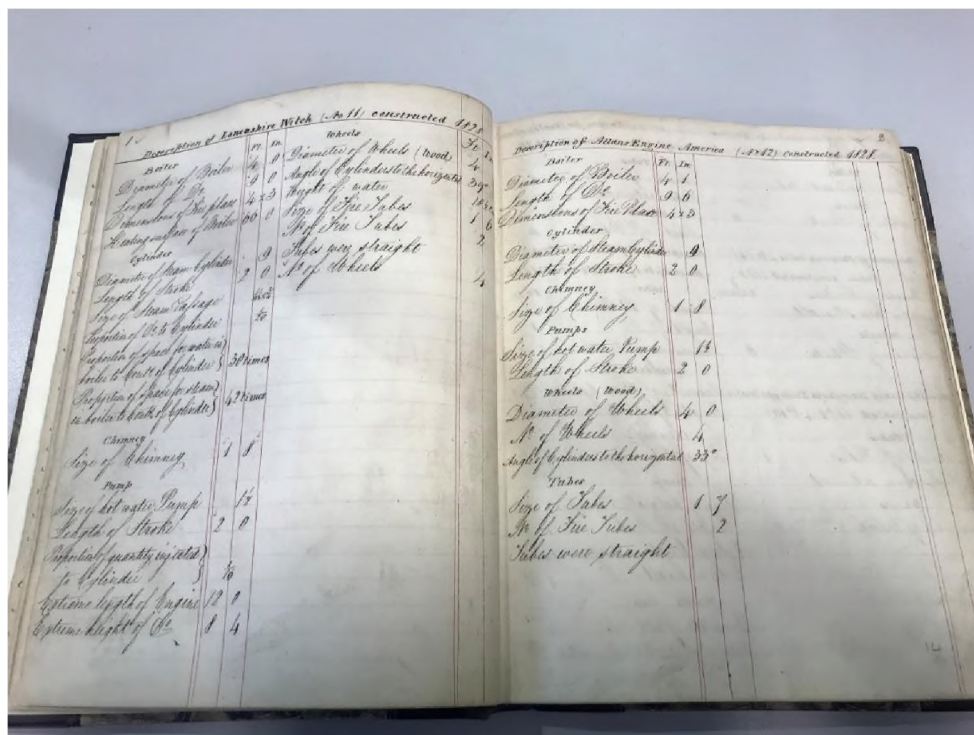 1
Description of Lancashire Witch (No 11) constructed 1828
Boiler Ft. In
Diameter of Boiler 4 0
Length of Do 9 0
Dimensions of Fire place 4 x 3
Heating surface of Boiler 66 0
Cylinder
Diameter of Steam Cylinder 9
Length of Stroke 2 0
Size of Steam Passage
Proportion of Do to Cylinder 1/10
Proportion of space for water in
boiler to Contt of Cylinder } 30 times
Proportion of space for steam
in boiler to Contt of Cylinder } 42 times
Chimney
Size of Chimney 1 8
Pump
Size of hot water Pump
Length of Stroke 2 0
Proportion of quantity injected
to Cylinder }
Extreme length of Engine 12 0
Extreme height of Do 8 4
Wheels Ft In
Diameter of Wheels (Wood) 4
Angle of Cylinders to the horizontal 39°
Weight of water
Size of Fire Tubes 1 6
No of Fire Tubes 2
Tubes were straight
No of Wheels 4
2
Description of Engine America (No 12) constructed 1828
Boiler Ft. In
Diameter of Boiler 4 1
Length of Do 9 6
Dimensions of Fire Place 4 x 3
Cylinder
Diameter of Steam Cylinder 9
Length of Stroke 2 0
Chimney
Size of Chimney 1 8
Pumps
Size of hot water Pump
Length of Stroke 2 0
Wheels (Wood)
Diameter of Wheels 4 0
No of Wheels 4
Angle of Cylinders to the horizontal 33°
Tubes
Size of Tubes 1 7
No of Fire Tubes 2
Tubes were straight